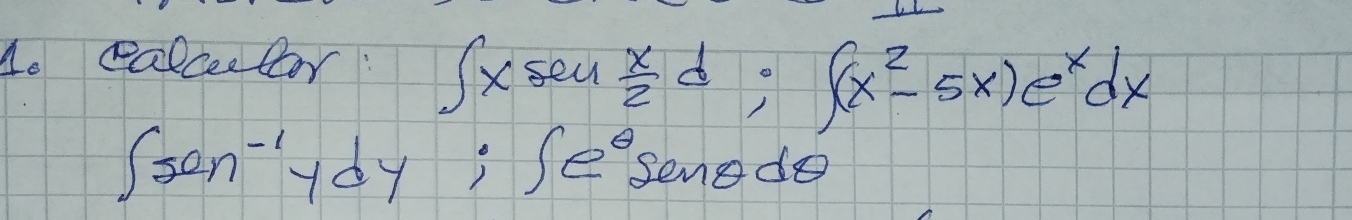 1. Calcular: ∫x sen x/2 d ; ∫(x²-5x)eˣdx
∫sen⁻¹ydy ; ∫e^θ senθdθ